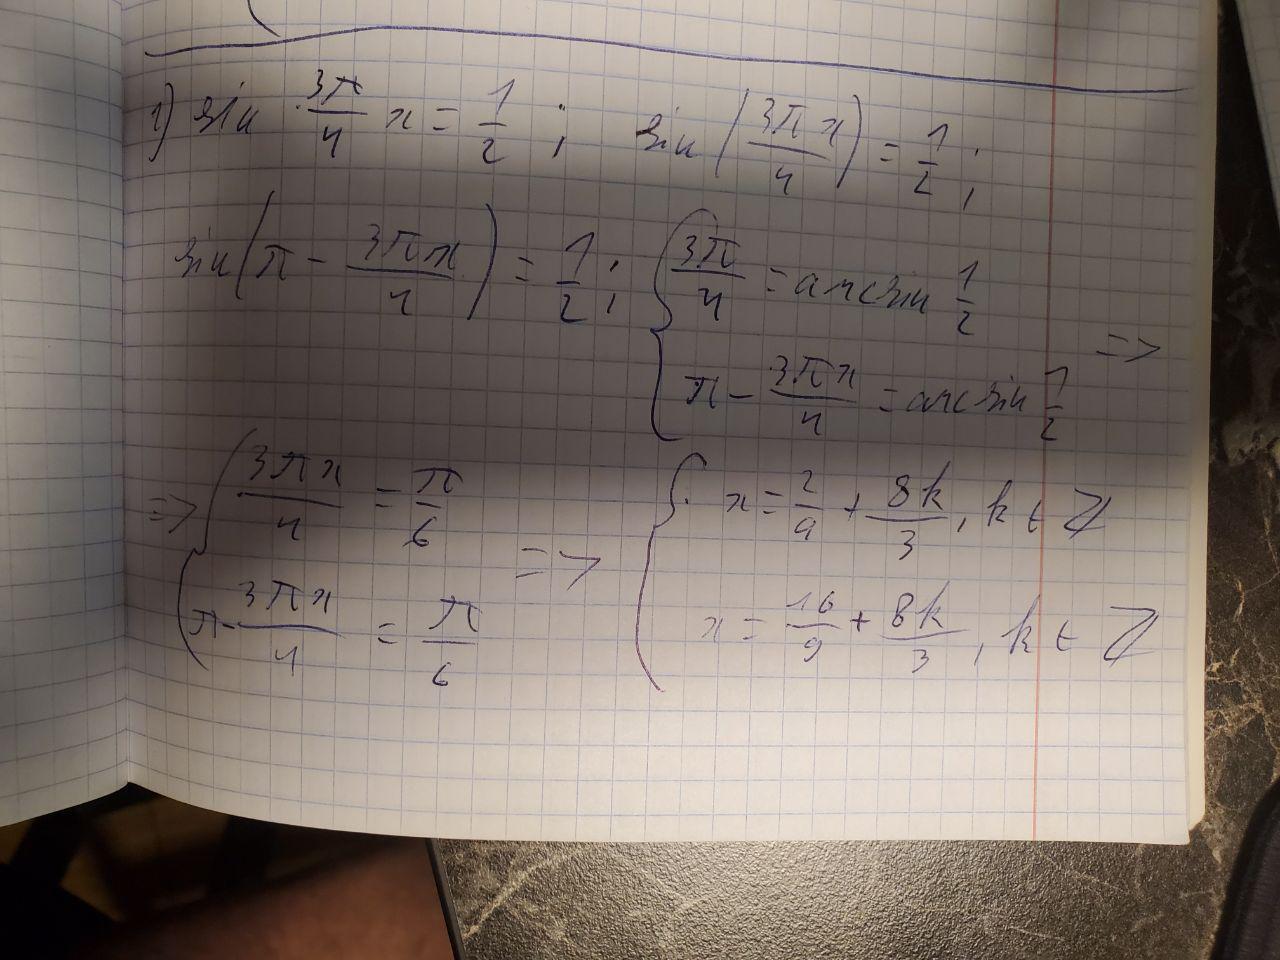 г) sin 3π/4 x = 1/2 ; sin(3πx/4) = 1/2 ;
sin(π - 3πx/4) = 1/2 ; { 3π/4 = arcsin 1/2
π - 3πx/4 = arcsin 1/2 =>
=> { 3πx/4 = π/6 => { x = 2/9 + 8k/3, k ∈ ℤ
π - 3πx/4 = π/6 x = 16/9 + 8k/3, k ∈ ℤ